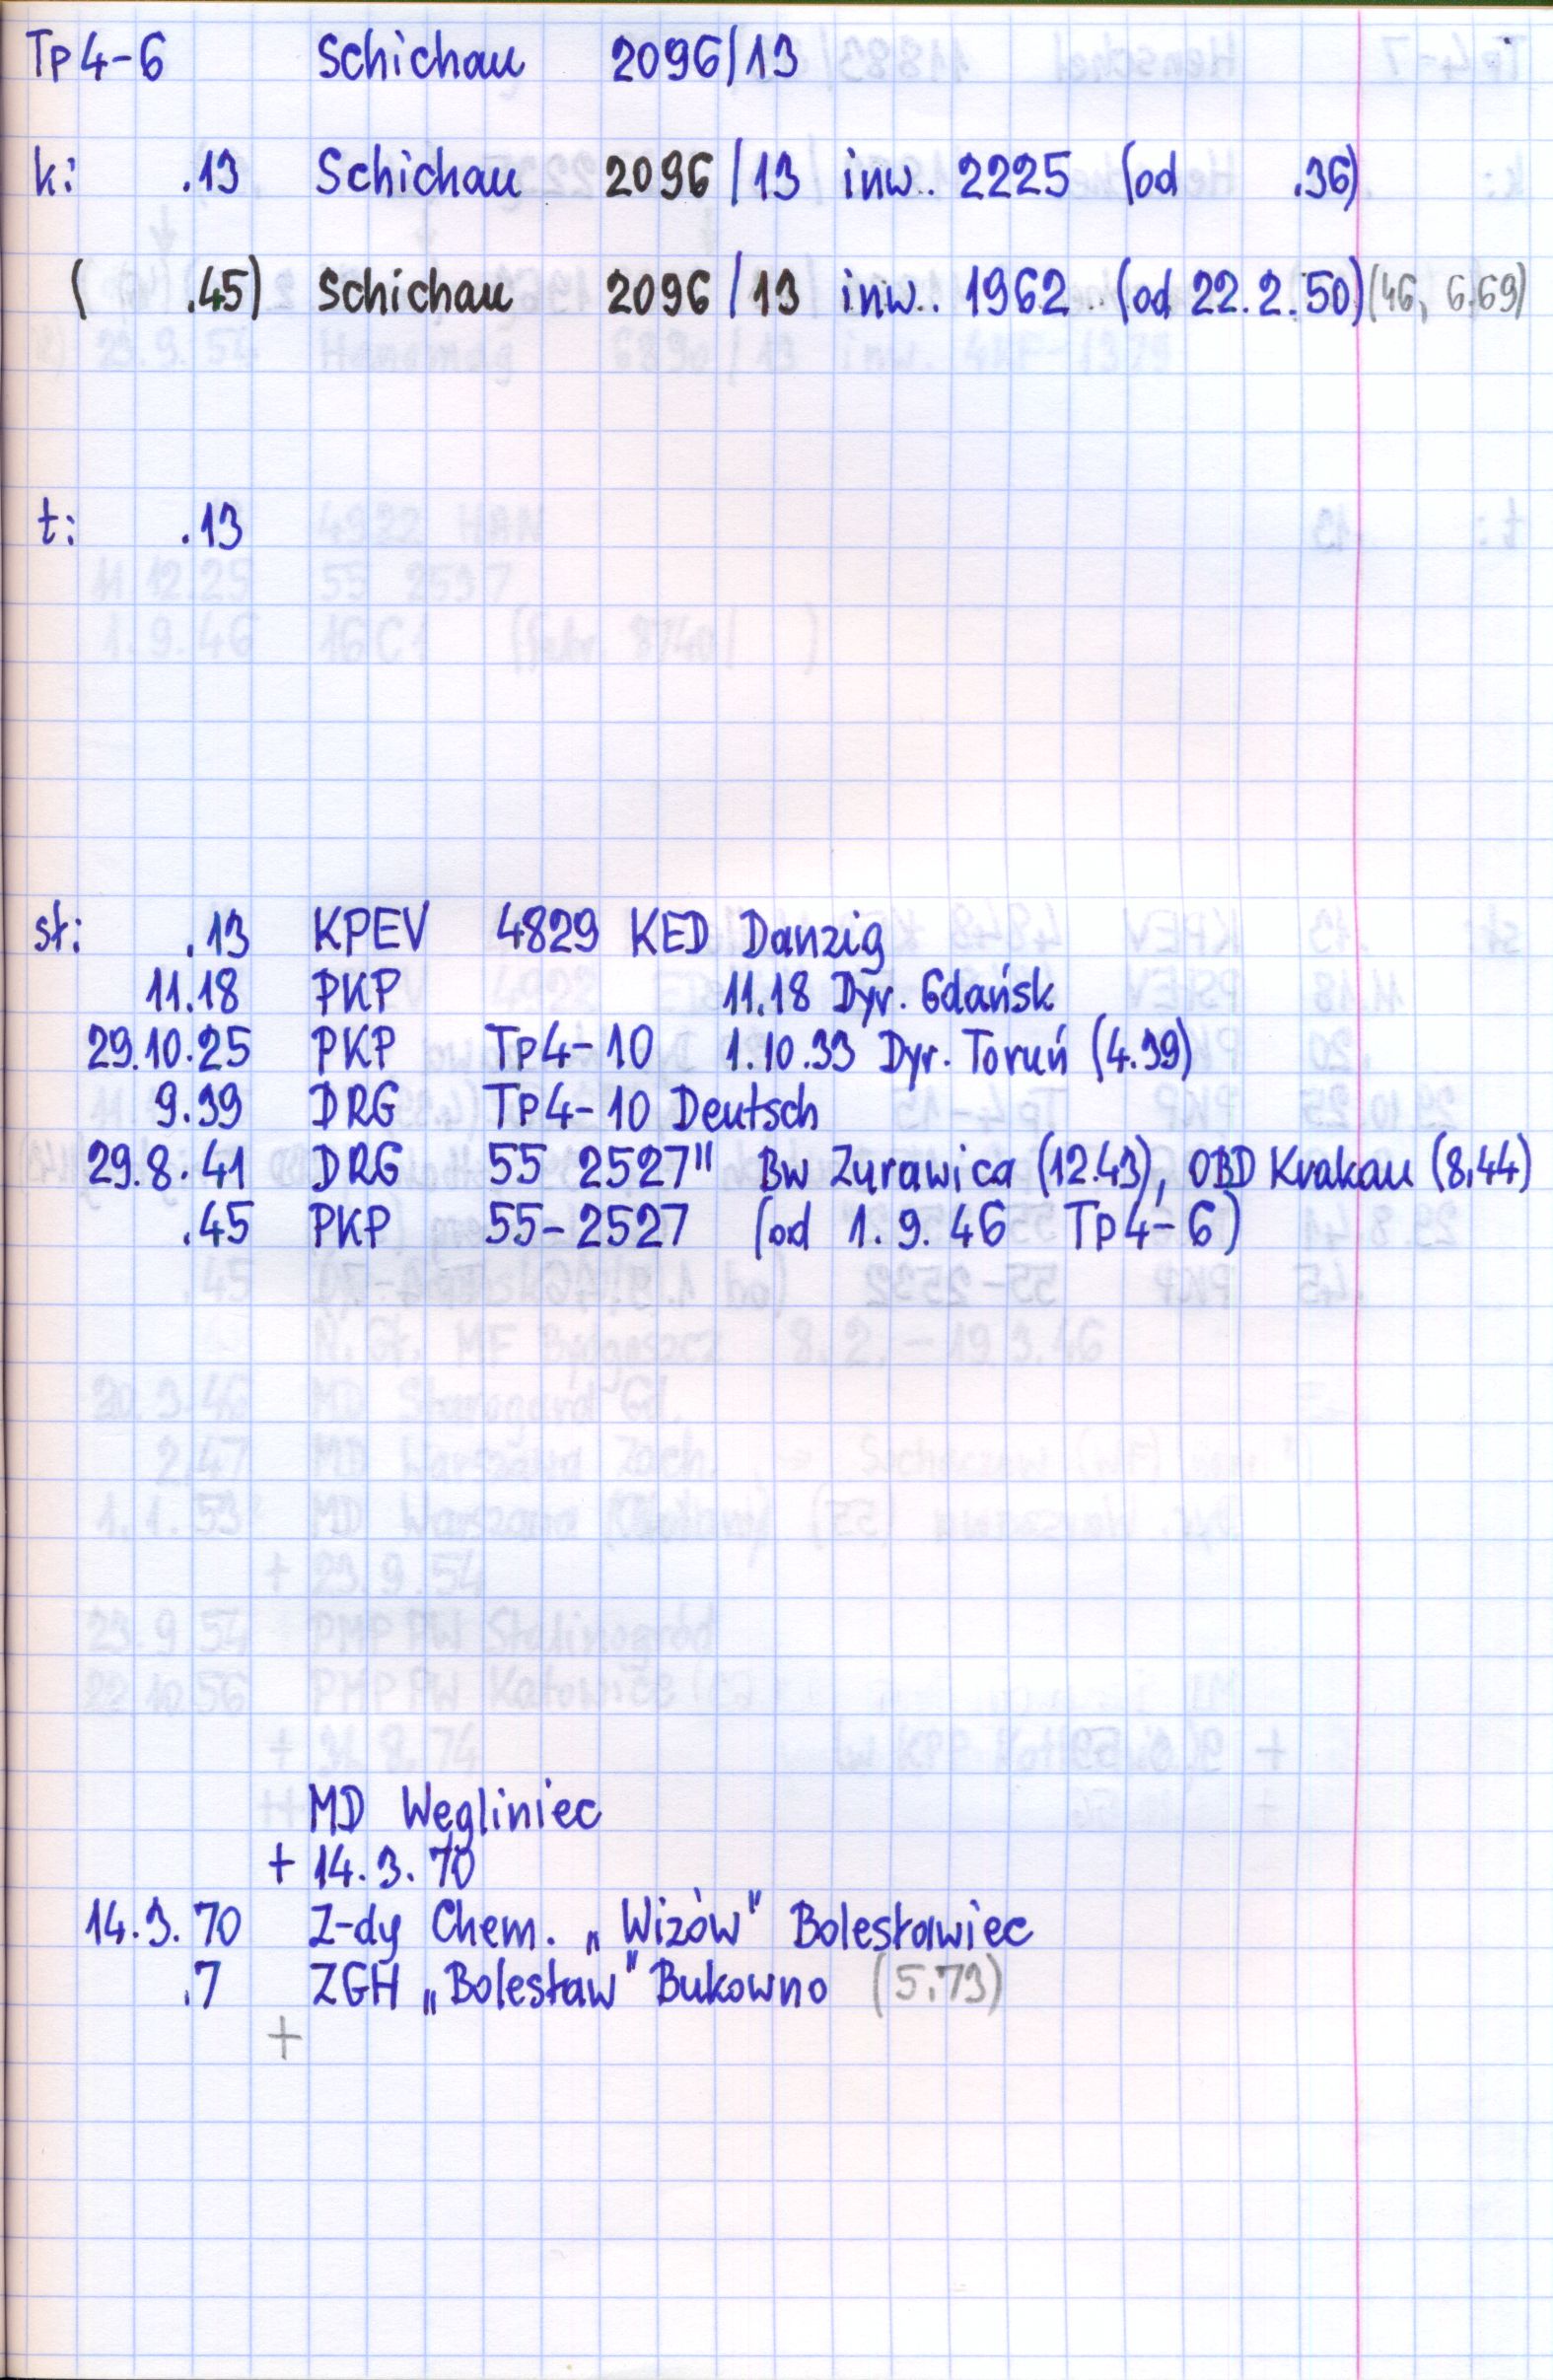 Tp4-6 Schichau 2096/13
k: .13 Schichau 2096/13 inw. 2225 (od .36)
( .45) Schichau 2096/13 inw. 1962 (od 22.2.50) (46, 6.69)
t: .13
st: .13 KPEV 4829 KED Danzig
11.18 PKP 11.18 Dyr. Gdańsk
29.10.25 PKP Tp4-10 1.10.33 Dyr. Toruń (4.39)
9.39 DRG Tp4-10 Deutsch
29.8.41 DRG 55 2527" Bw Zurawica (12.43), OBD Krakau (8.44)
.45 PKP 55-2527 (od 1.9.46 Tp4-6)
MD Węgliniec
+ 14.3.70
14.3.70 Z-dy Chem. „Wizów" Bolesławiec
.7 ZGH „Bolesław" Bukowno (5.73)
+